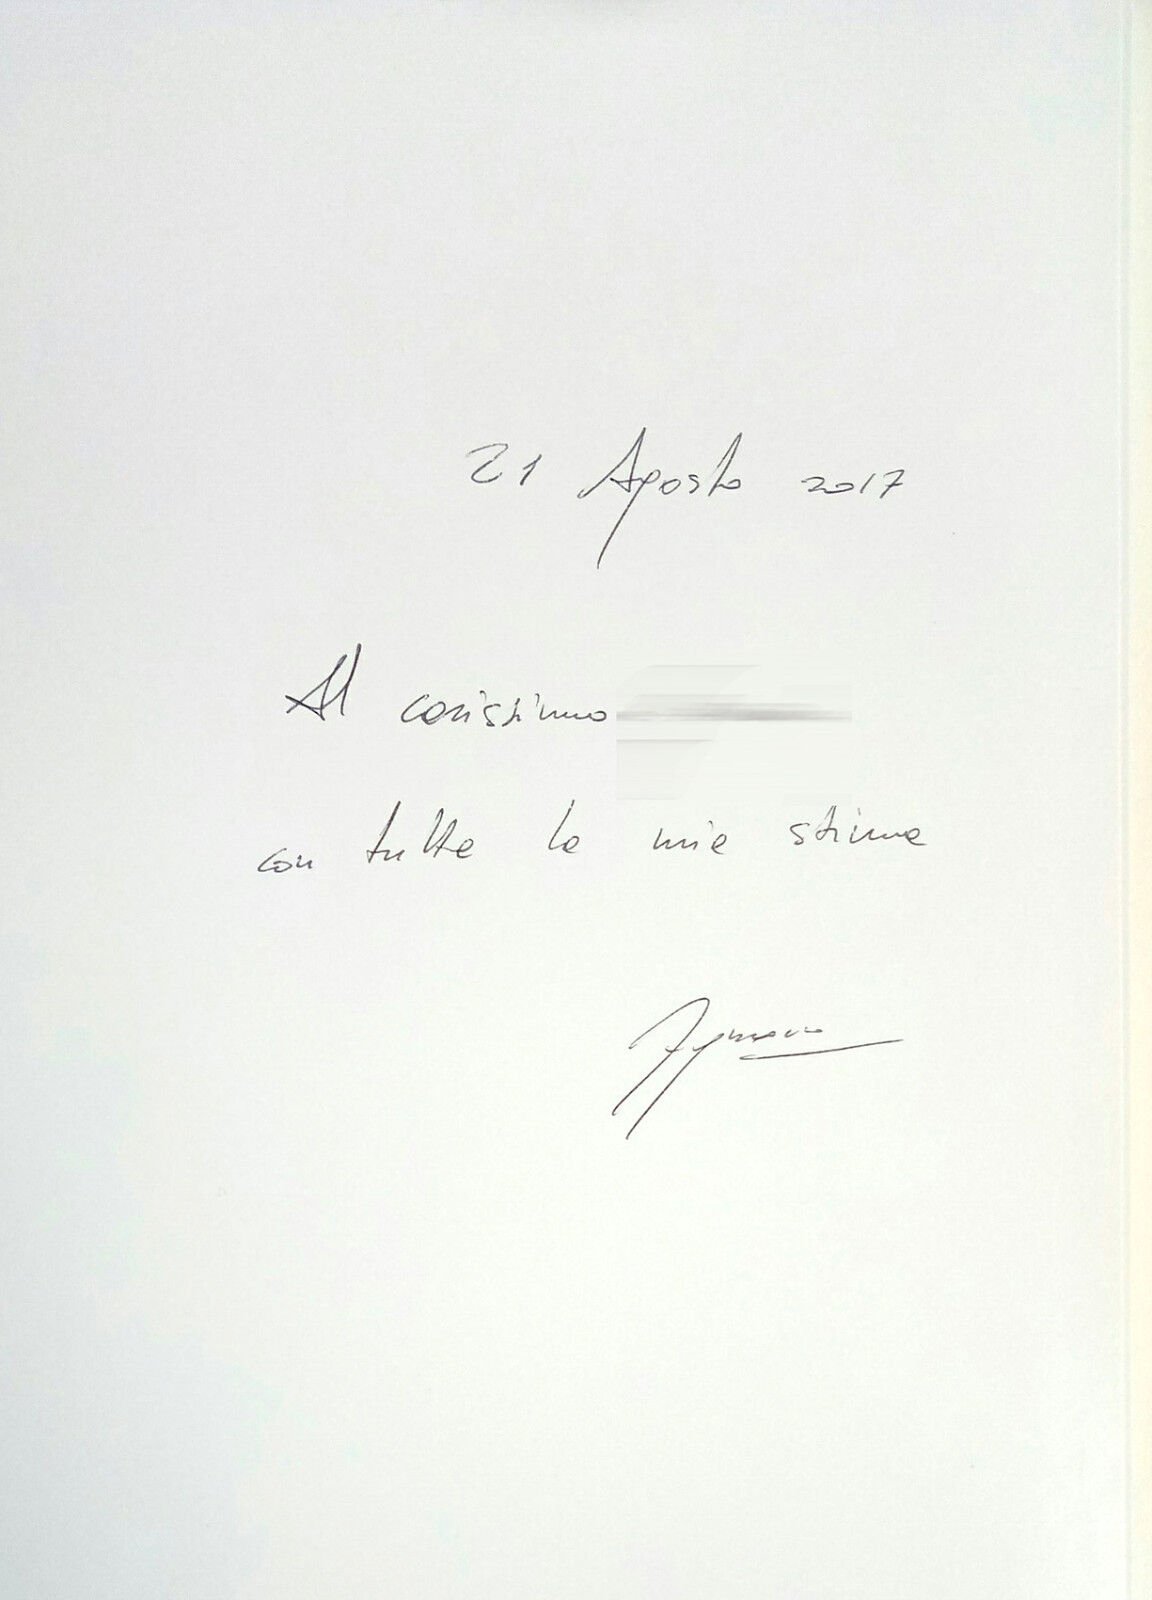 21 Agosto 2017
Al carissimo
con tutta la mia stima